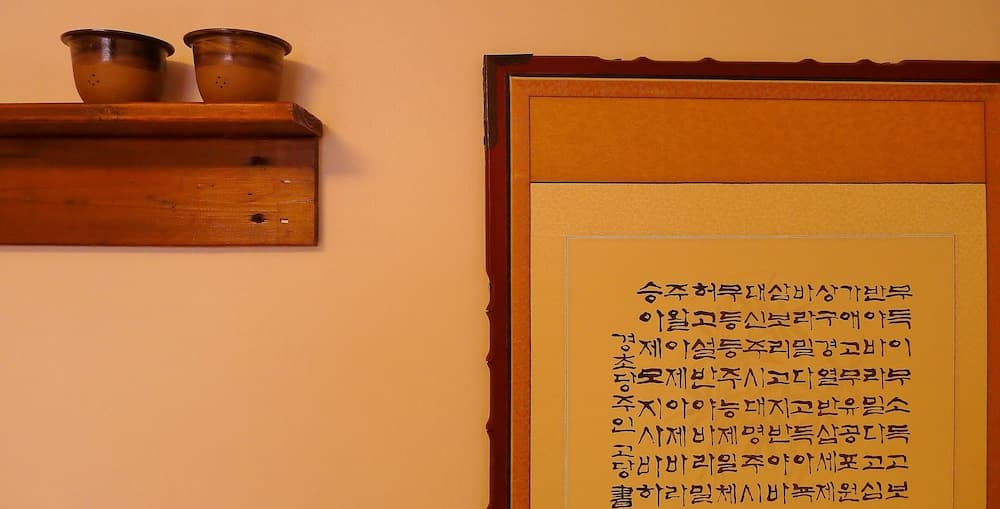 무득이무소득고보
반야바라밀다고심
가애고무유공포원
상구경열반삼세제
바라밀다고득아녹
삼보리고지반야바
대신주시대명주시
무등등주능제일체
허고설반야바라밀
주왈아제아제바라
승아제모지사바하
경초당주인 고당 書